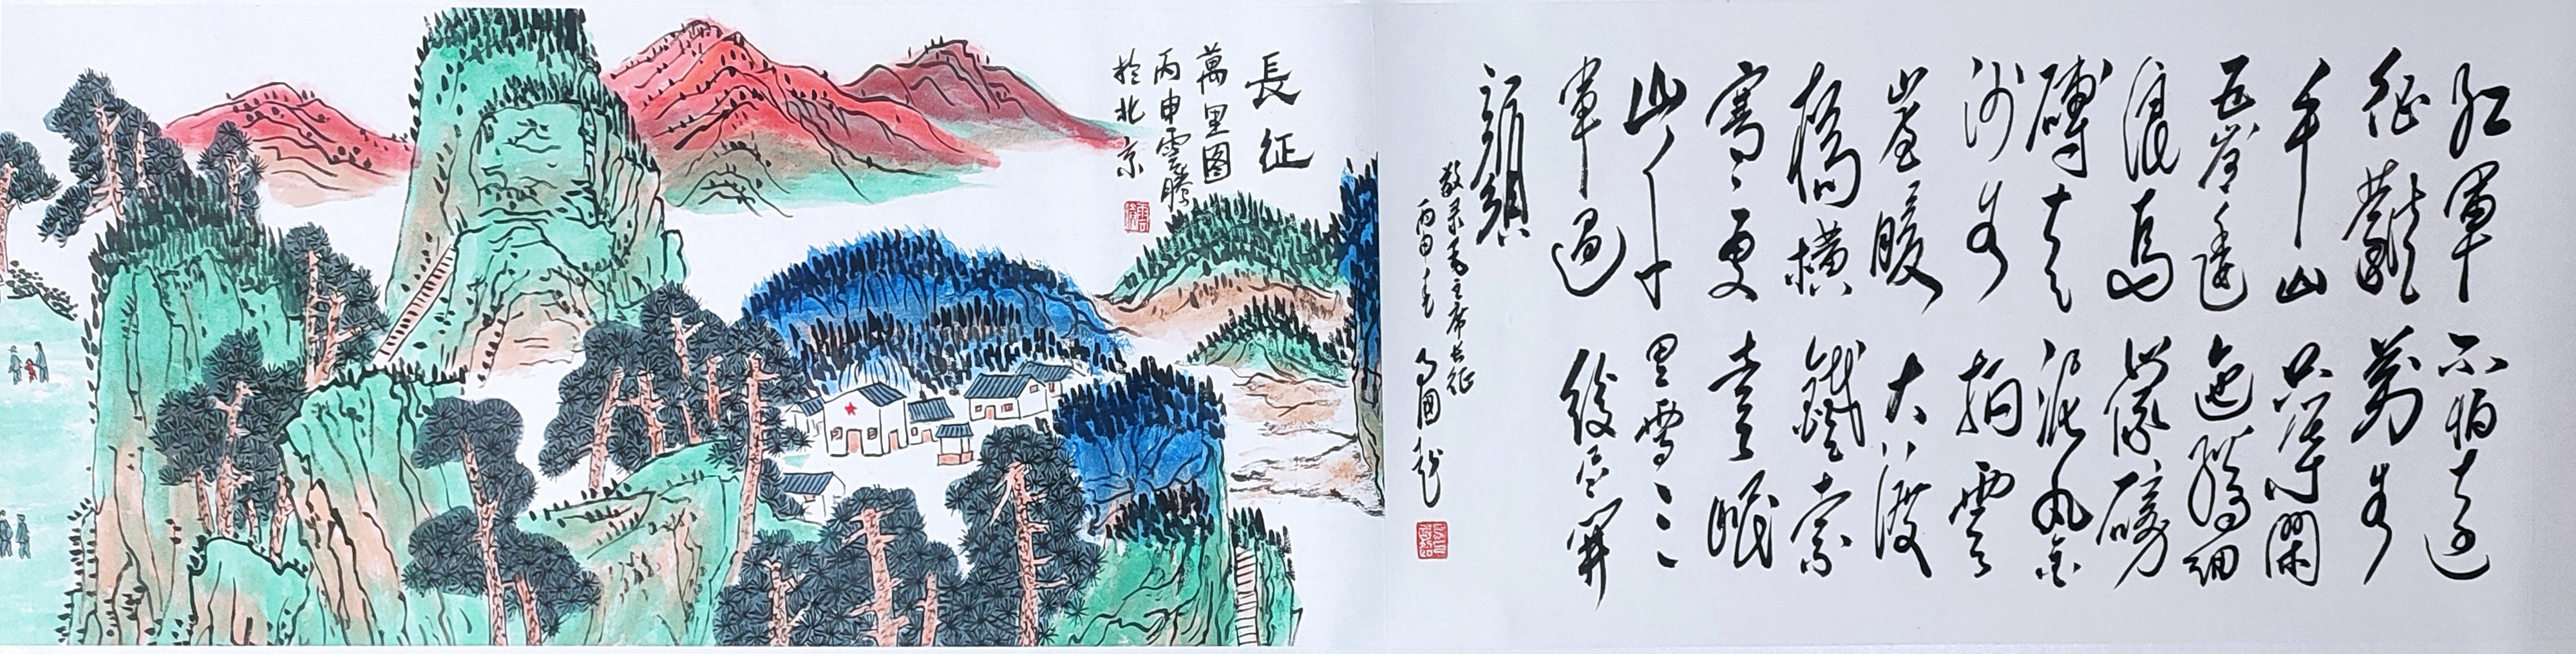 红軍不怕远
征難萬水
千山只等閑
五岭逶迤腾细
浪烏蒙磅
礴走泥丸金
沙水拍雲
崖暖大渡
橋横鐵索
寒更喜岷
山千里雪三
軍过後尽開
顔
敬录毛主席长征
丙申
長征
萬里图
丙申雲騰
於北京